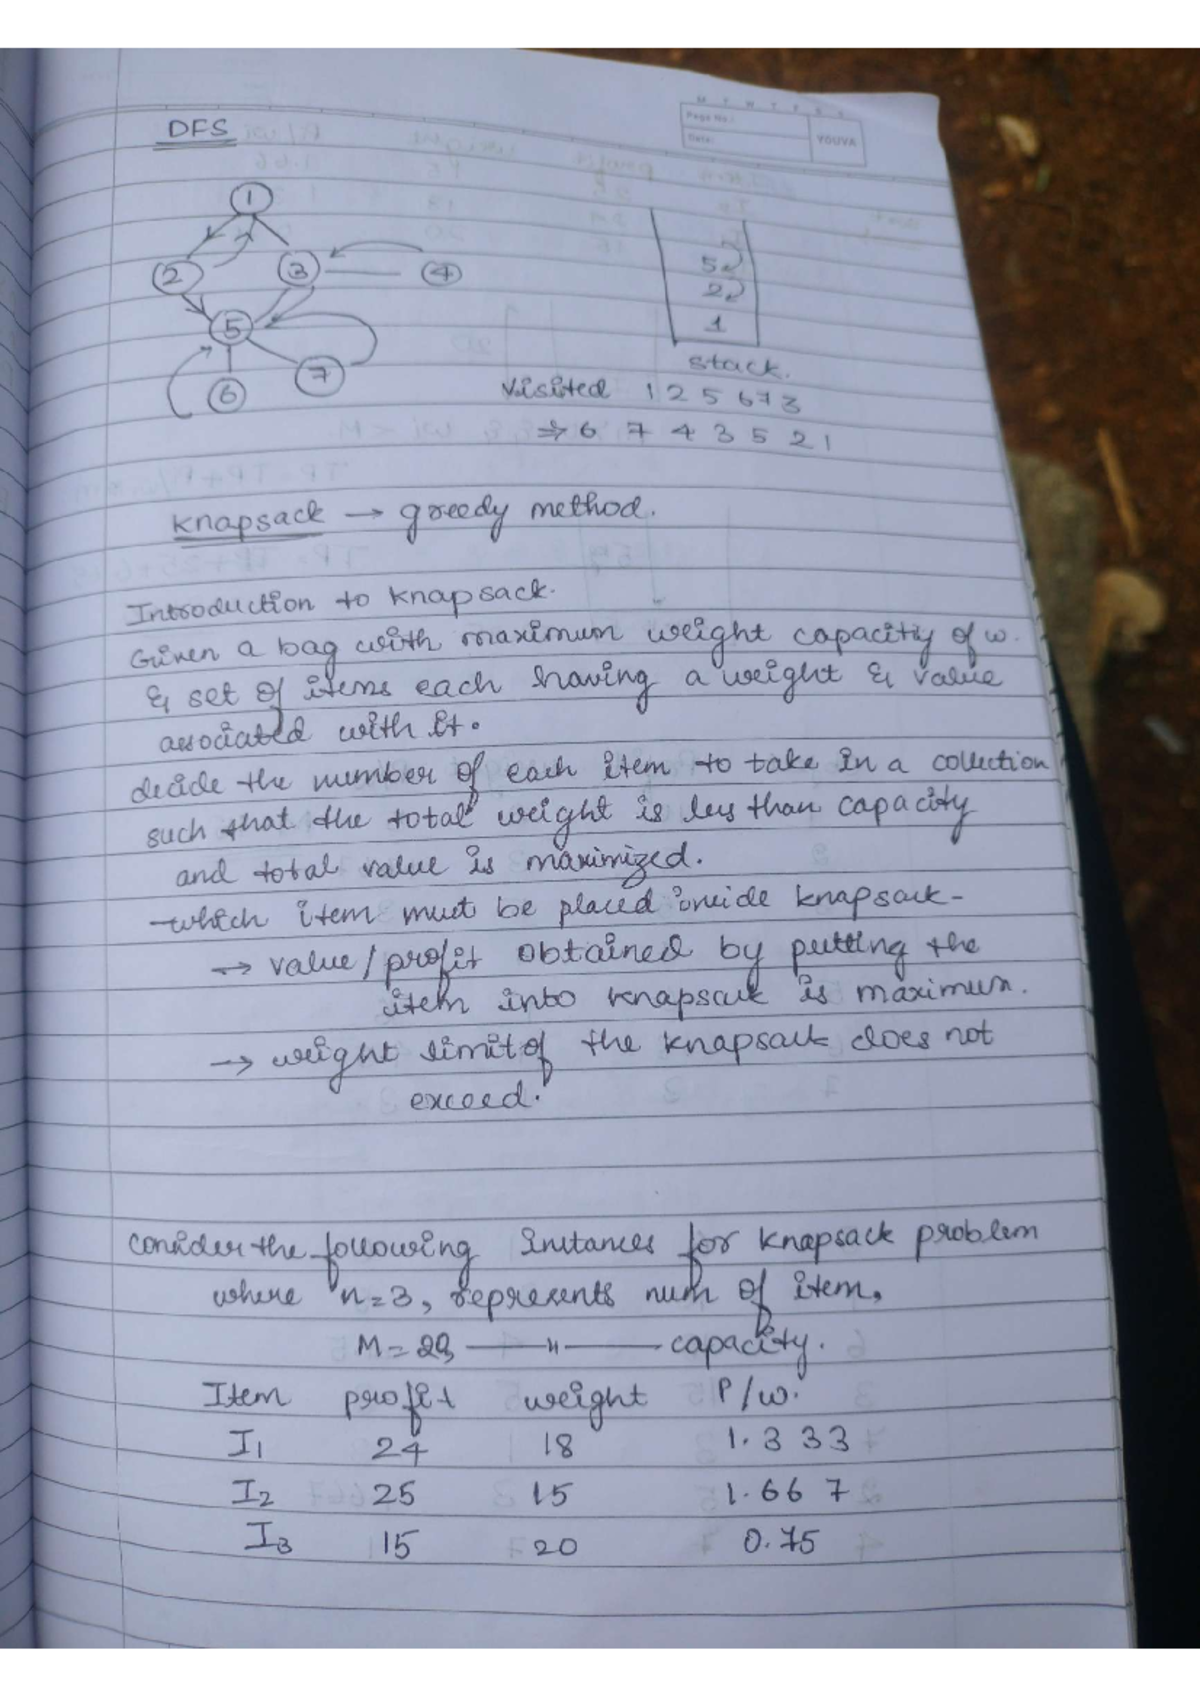 DFS
M T W T F S S
Page No.:
Date:
YOUVA
1
2 3 4
5
6 7
5
2
1
stack.
Visited 1 2 5 6 7 3
⇒ 6 7 4 3 5 2 1
Knapsack → greedy method.
Introduction to knapsack.
Given a bag with maximum weight capacity of w.
& set of items each having a weight & value
associated with it.
decide the number of each item to take in a collection
such that the total weight is less than capacity
and total value is maximized.
-which item must be placed inside knapsack-
→ value/profit obtained by putting the
item into knapsack is maximum.
→ weight limit of the knapsack does not
exceed.
Consider the following instances for knapsack problem
where n=3, represents num of item,
M = — " — capacity.
Item profit weight P/w.
I1 24 18 1.333
I2 25 15 1.667
I3 15 20 0.75